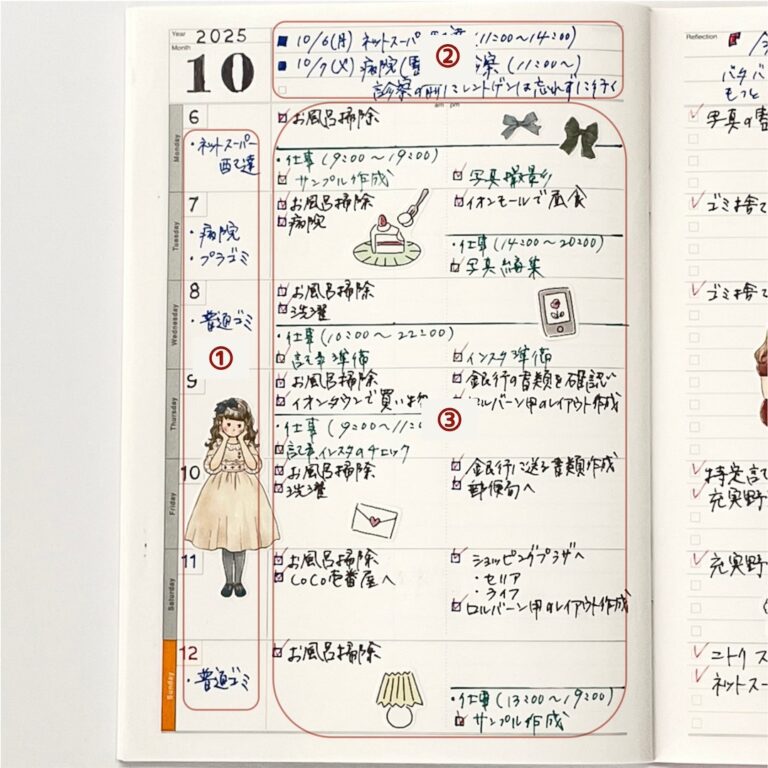 Year 2025
Month 10
10/6(月) ネットスーパ (11:00〜14:00)
②
10/7(火) 病院( 察 (11:00〜)
診察の前にレントゲンは忘れずに行く
am pm
6
Monday
・ネットスーパー
配達
お風呂掃除
・仕事 (9:00〜19:00)
サンプル作成
写真撮影
7
Tuesday
・病院
・プラゴミ
お風呂掃除
病院
イオンモールで昼食
・仕事 (14:00〜20:00)
写真編集
8
Wednesday
・普通ゴミ
お風呂掃除
洗濯
・仕事 (10:00〜22:00)
記事準備
インスタ準備
①
9
Thursday
お風呂掃除
イオンタウンで買い物
銀行の書類を確認
ルバーン用のレイアウト作成
③
・仕事 (9:00〜11:
記事、インスタのチェック
10
Friday
お風呂掃除
洗濯
銀行に送る書類作成
郵便局へ
11
Saturday
お風呂掃除
CoCo壱番屋へ
ショッピングプラザへ
・セリア
・ライフ
ロルバーン用のレイアウト作成
12
Sunday
・普通ゴミ
お風呂掃除
・仕事 (13:00〜19:00)
サンプル作成
Reflection
バタバ
もっと
写真の
ゴミ捨て
ゴミ捨て
充実野
充実野
ニトリ ス
ネットスー